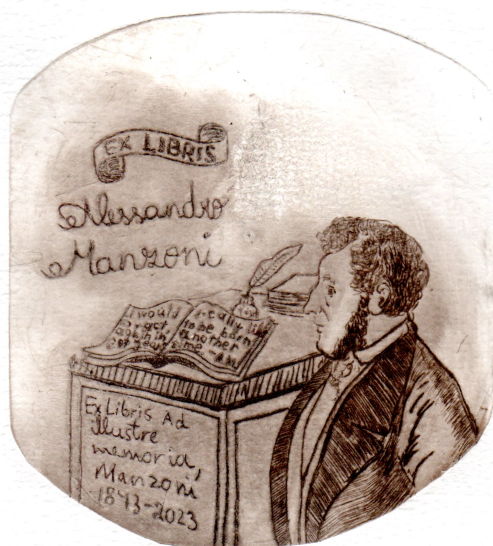 EX LIBRIS
Alessandro
Manzoni
I would really like
to be born
another
Ex Libris Ad
illustre
memoria,
Manzoni
1873-2023